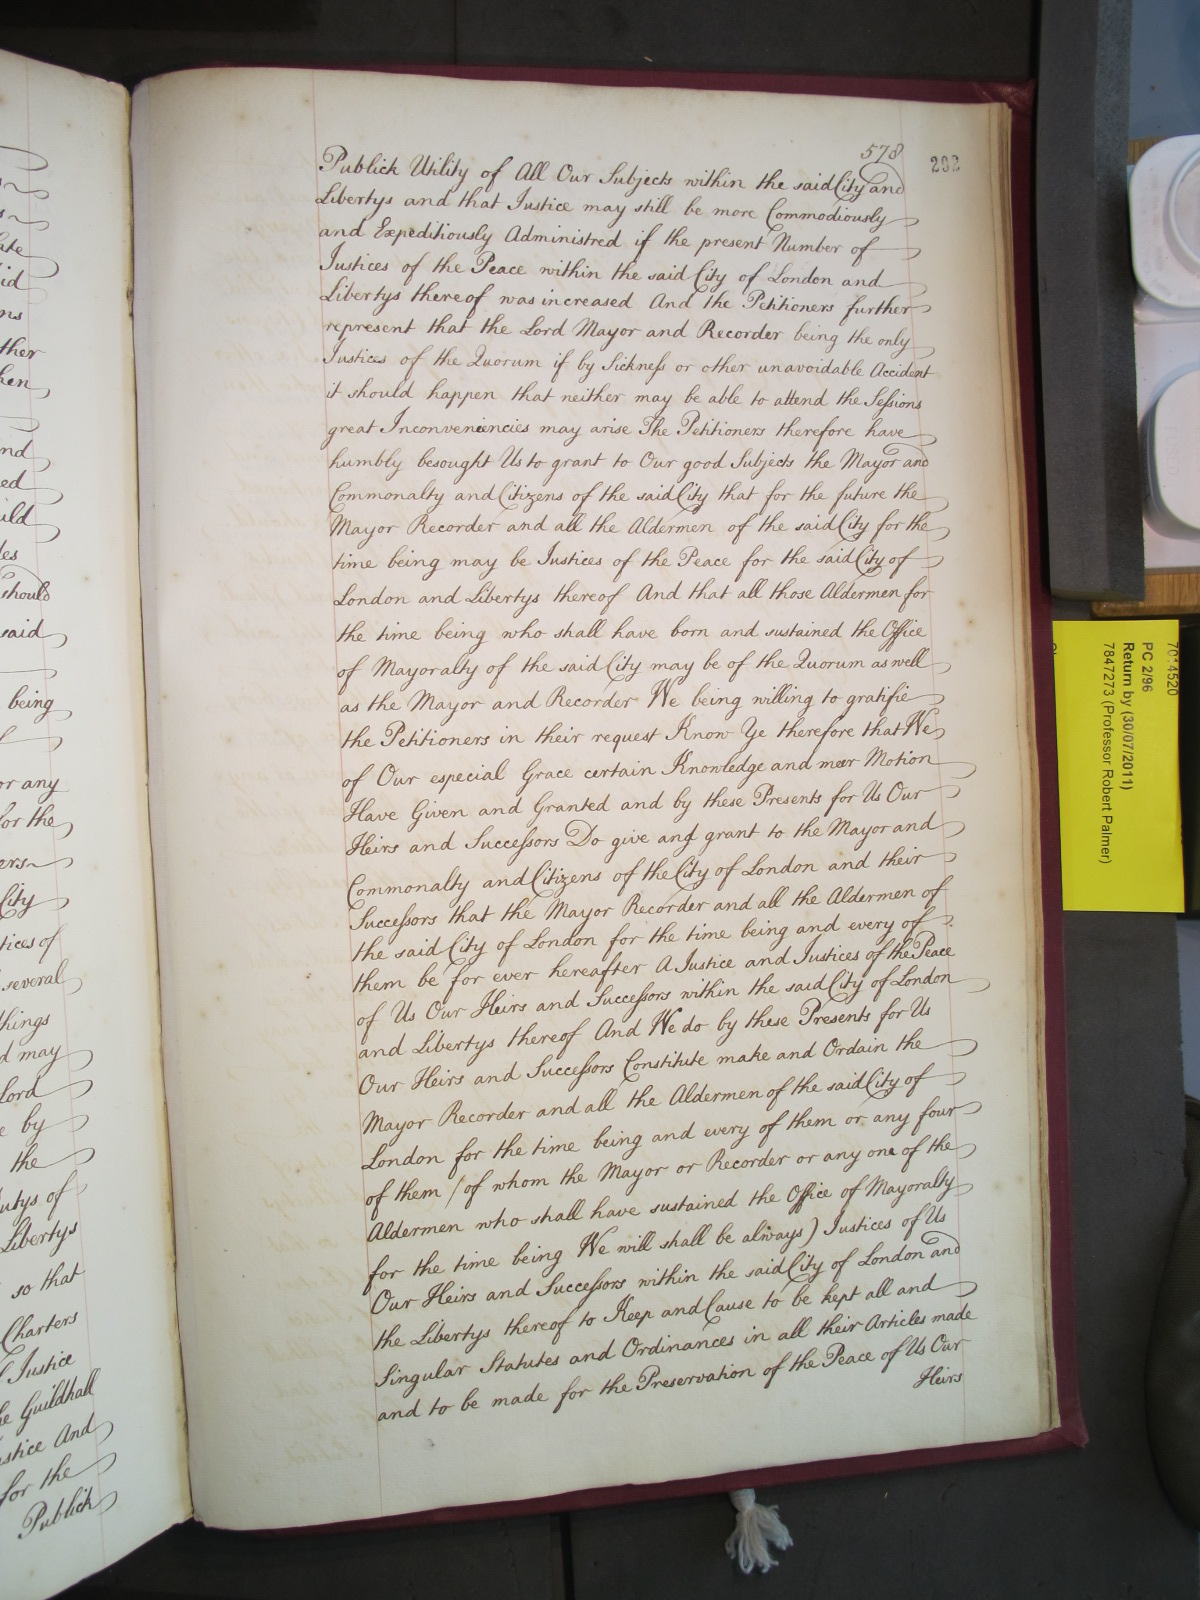 578
292
Publick Utility of All Our Subjects within the said City and
Libertys and that Justice may still be more Commodiously
and Expeditiously Administred if the present Number of
Justices of the Peace within the said City of London and
Libertys thereof was increased And the Petitioners further
represent that the Lord Mayor and Recorder being the only
Justices of the Quorum if by Sickness or other unavoidable Accident
it should happen that neither may be able to attend the Sessions
great Inconveniencies may arise The Petitioners therefore have
humbly besought Us to grant to Our good Subjects the Mayor and
Commonalty and Citizens of the said City that for the future the
Mayor Recorder and all the Aldermen of the said City for the
time being may be Justices of the Peace for the said City of
London and Libertys thereof And that all those Aldermen for
the time being who shall have born and sustained the Office
of Mayoralty of the said City may be of the Quorum as well
as the Mayor and Recorder We being willing to gratifie
the Petitioners in their request Know Ye therefore that We
of Our especial Grace certain Knowledge and meer Motion
Have Given and Granted and by these Presents for Us Our
Heirs and Successors Do give and grant to the Mayor and
Commonalty and Citizens of the City of London and their
Successors that the Mayor Recorder and all the Aldermen of
the said City of London for the time being and every of
them be for ever hereafter A Justice and Justices of the Peace
of Us Our Heirs and Successors within the said City of London
and Libertys thereof And We do by these Presents for Us
Our Heirs and Successors Constitute make and Ordain the
Mayor Recorder and all the Aldermen of the said City of
London for the time being and every of them or any four
of them (of whom the Mayor or Recorder or any one of the
Aldermen who shall have sustained the Office of Mayoralty
for the time being We will shall be always) Justices of Us
Our Heirs and Successors within the said City of London and
the Libertys thereof to Keep and Cause to be kept all and
Singular Statutes and Ordinances in all their Articles made
and to be made for the Preservation of the Peace of Us Our
Heirs
ther
should
said
being
or any
for the
City
tices of
several
things
may
Lord
by
the
of
Libertys
so that
Charters
Justice
Guildhall
And
for the
Publick
PC 2/96
Return by (30/07/2011)
7847273 (Professor Robert Palmer)